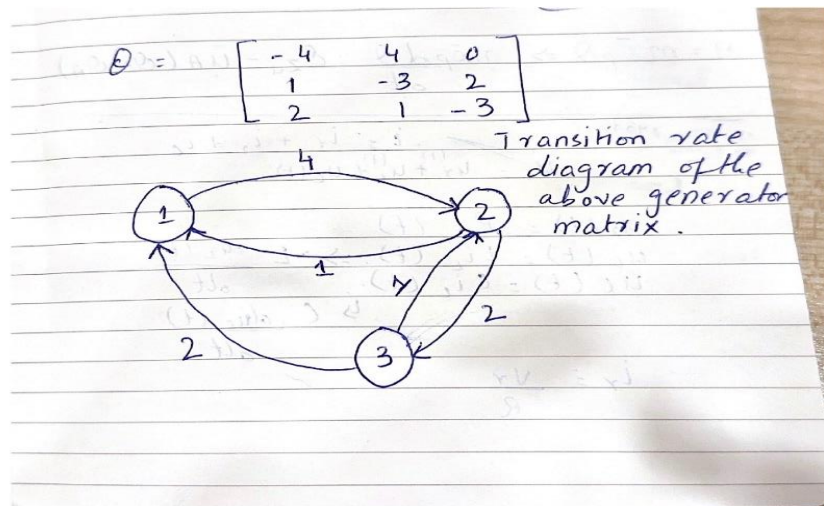 Q = [ -4 4 0
1 -3 2
2 1 -3 ]
Transition rate
diagram of the
above generator
matrix.
4
1
2
1
1
2
2
3